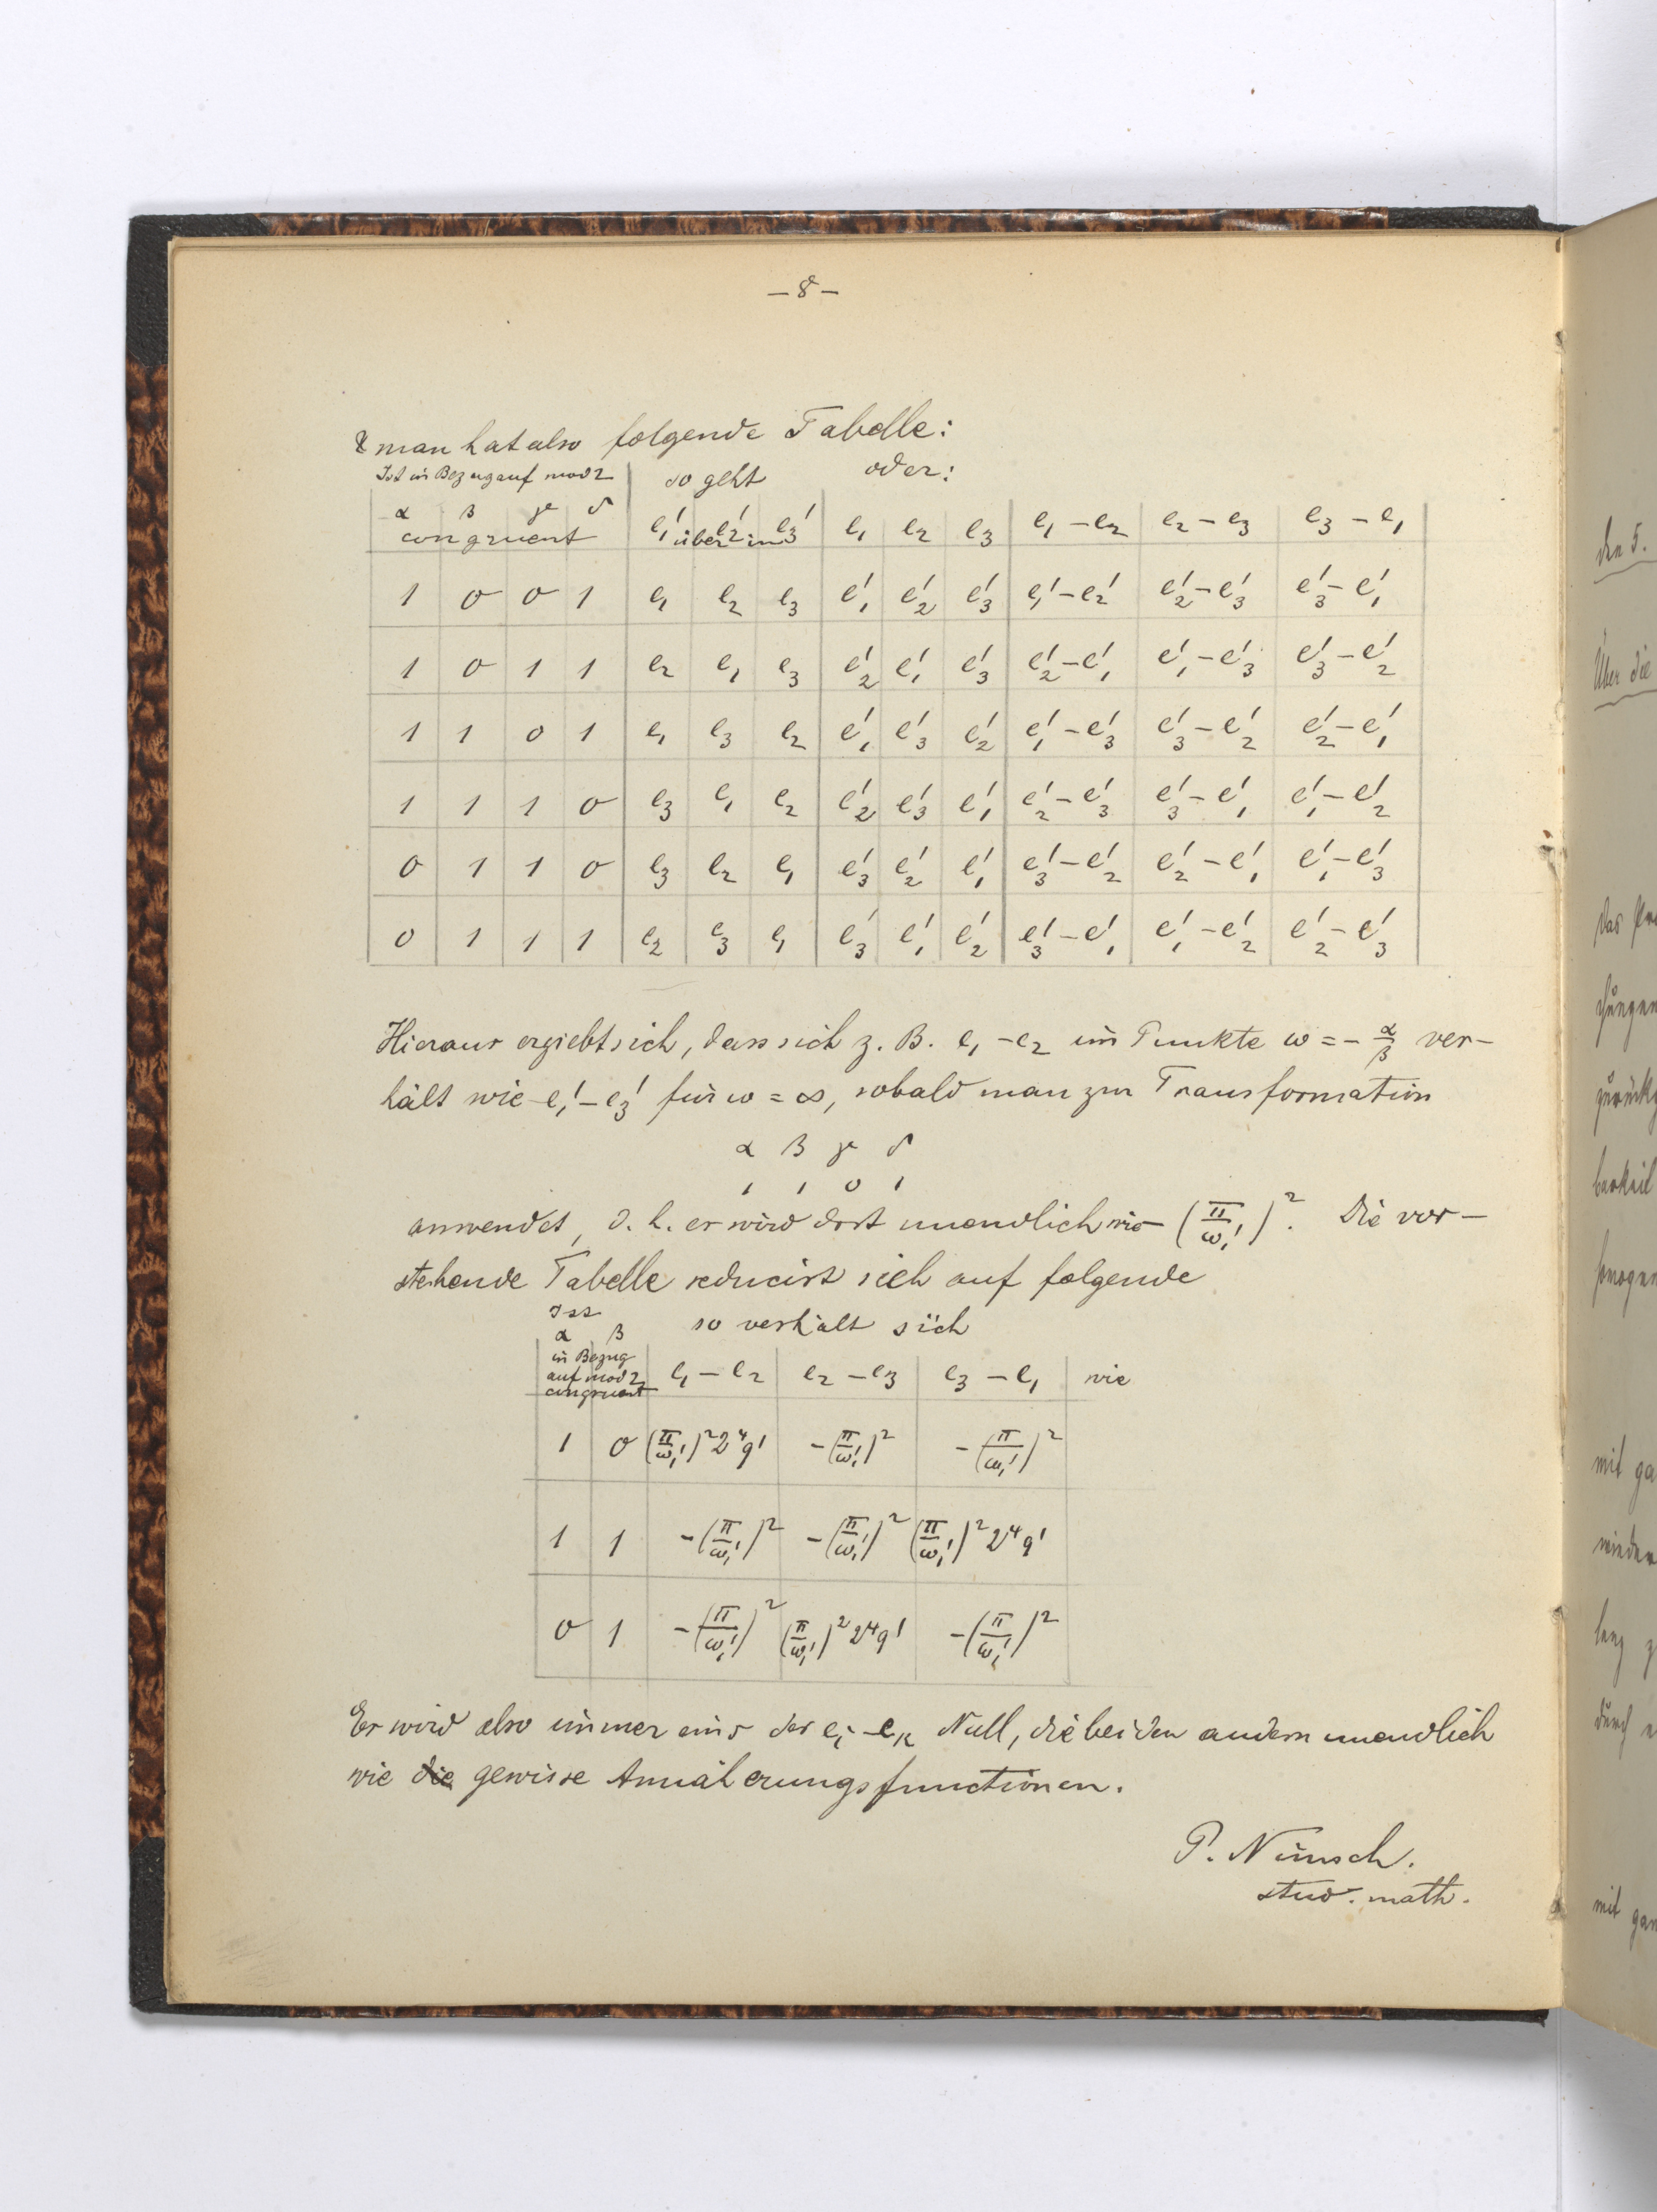 – 8 –
& man hat also folgende Tabelle:
Ist in Bezug auf mod 2 | so geht oder:
α β γ δ congruent | e₁' e₂' e₃' über in | e₁ | e₂ | e₃ | e₁ – e₂ | e₂ – e₃ | e₃ – e₁
1 | 0 | 0 | 1 | e₁ | e₂ | e₃ | e₁' | e₂' | e₃' | e₁' – e₂' | e₂' – e₃' | e₃' – e₁'
1 | 0 | 1 | 1 | e₂ | e₁ | e₃ | e₂' | e₁' | e₃' | e₂' – e₁' | e₁' – e₃' | e₃' – e₂'
1 | 1 | 0 | 1 | e₁ | e₃ | e₂ | e₁' | e₃' | e₂' | e₁' – e₃' | e₃' – e₂' | e₂' – e₁'
1 | 1 | 1 | 0 | e₃ | e₁ | e₂ | e₂' | e₃' | e₁' | e₂' – e₃' | e₃' – e₁' | e₁' – e₂'
0 | 1 | 1 | 0 | e₃ | e₂ | e₁ | e₃' | e₂' | e₁' | e₃' – e₂' | e₂' – e₁' | e₁' – e₃'
0 | 1 | 1 | 1 | e₂ | e₃ | e₁ | e₃' | e₁' | e₂' | e₃' – e₁' | e₁' – e₂' | e₂' – e₃'
Hieraus ergiebt sich, dass sich z. B. e₁ – e₂ im Punkte ω = – α/β ver–
hält wie e₁' – e₃' für ω = ∞, sobald man zur Transformation
α β γ δ
1 1 0 1
anwendet, d. h. es wird dort unendlich wie (π/ω₁')². Die vor–
stehende Tabelle reducirt sich auf folgende
Ist
α β so verhält sich
in Bezug
auf mod 2 | e₁ – e₂ | e₂ – e₃ | e₃ – e₁ | wie
congruent
1 | 0 | (π/ω₁')² 2⁴q' | –(π/ω₁')² | –(π/ω₁')²
1 | 1 | –(π/ω₁')² | –(π/ω₁')² | (π/ω₁')² 2⁴q'
0 | 1 | –(π/ω₁')² | (π/ω₁')² 2⁴q' | –(π/ω₁')²
Es wird also immer eins der eᵢ – eₖ Null, die beiden andern unendlich
wie die gewisse Annäherungsfunctionen.
P. Nimsch.
stud. math.
den 5.
Über die
das
mit
wieder
lang
durch
mit